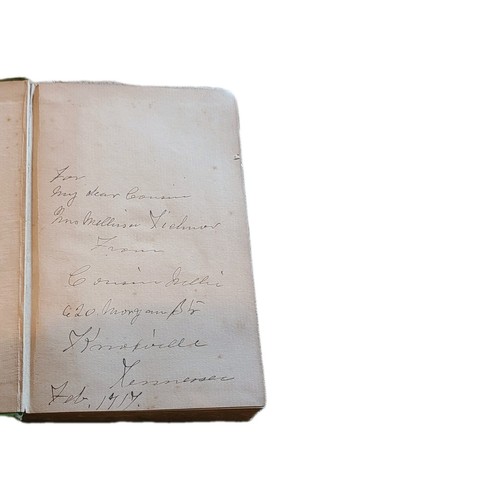 For
My dear Cousin
Mrs Mellissa
From
Cousin Nellie
620 Morgan St
Knoxville
Tennessee
Feb. 1917.